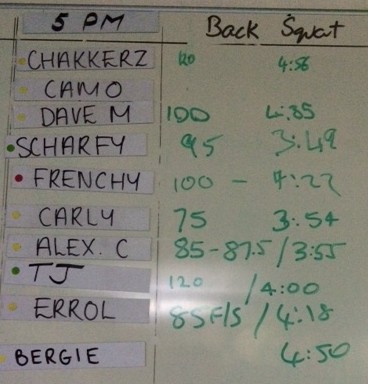 5 PM Back Squat
CHAKKERZ 120 4:56
CAMO
DAVE M 100 4:35
SCHARFY 95 3:49
FRENCHY 100 - 4:22
CARLY 75 3:54
ALEX. C 85-87.5 / 3:55
TJ 120 / 4:00
ERROL 85F/S / 4:18
BERGIE 4:50